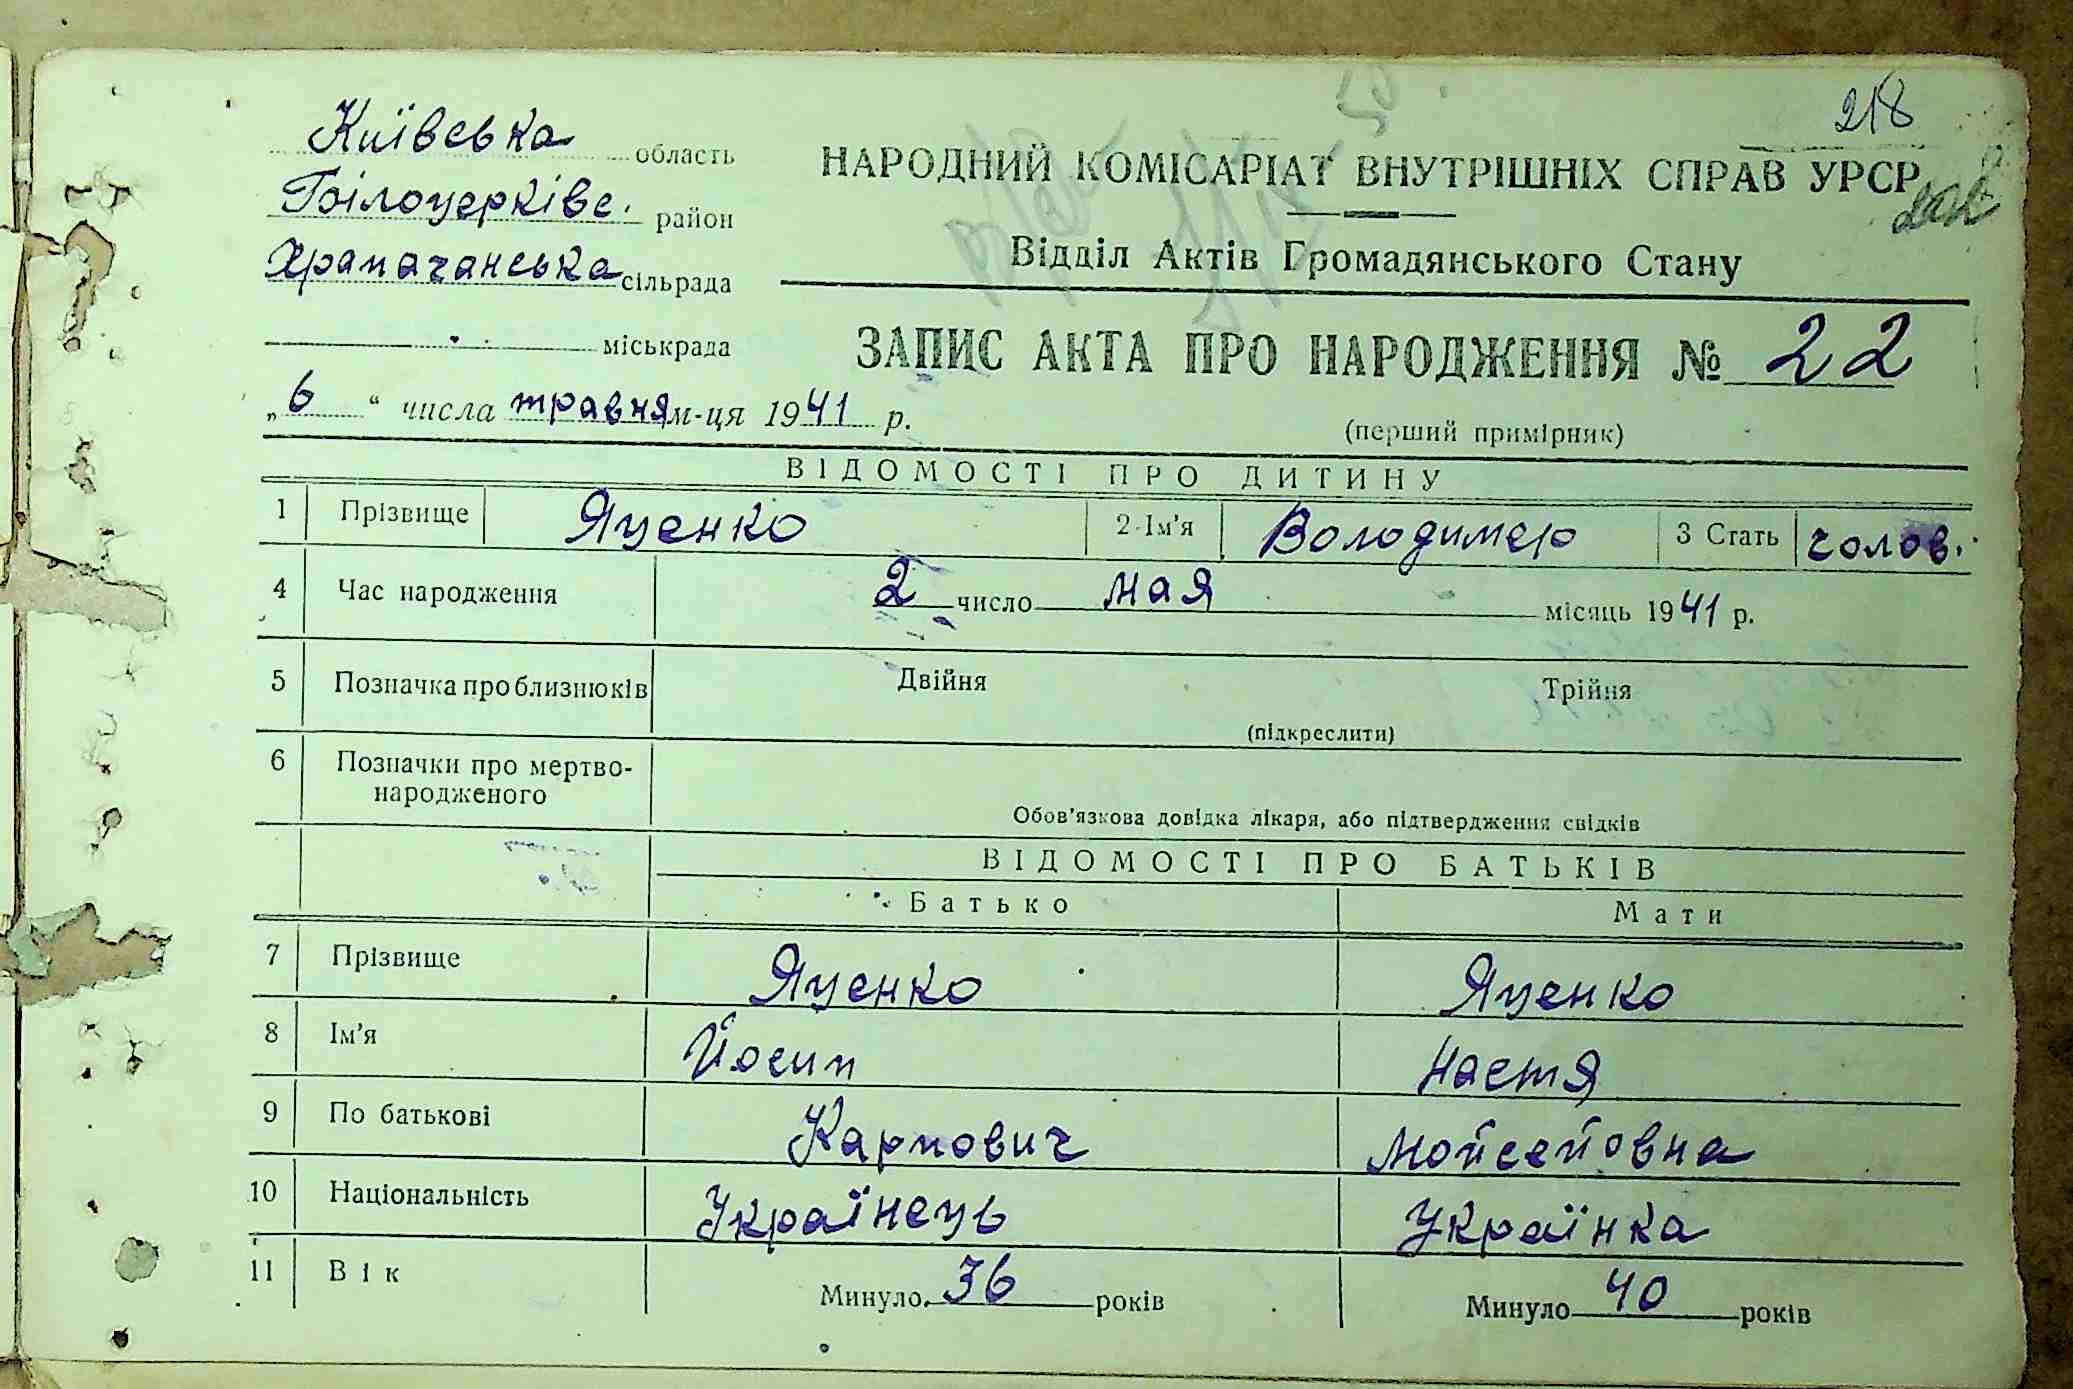 218
Київська область
Білоцерківс. район
Храпачанська сільрада
міськрада
„6“ числа травня м-ця 1941 р.
НАРОДНИЙ КОМІСАРІАТ ВНУТРІШНІХ СПРАВ УРСР
Відділ Актів Громадянського Стану
ЗАПИС АКТА ПРО НАРОДЖЕННЯ № 22
(перший примірник)
ВІДОМОСТІ ПРО ДИТИНУ
1 Прізвище Яценко 2 Ім'я Володимер 3 Стать чолов.
4 Час народження 2 число мая місяць 1941 р.
5 Позначка про близнюків Двійня Трійня
(підкреслити)
6 Позначки про мертво-
народженого
Обов'язкова довідка лікаря, або підтвердження свідків
ВІДОМОСТІ ПРО БАТЬКІВ
Батько Мати
7 Прізвище Яценко Яценко
8 Ім'я Йосип Настя
9 По батькові Карпович Мойсейовна
10 Національність Українець Українка
11 Вік Минуло 36 років Минуло 40 років